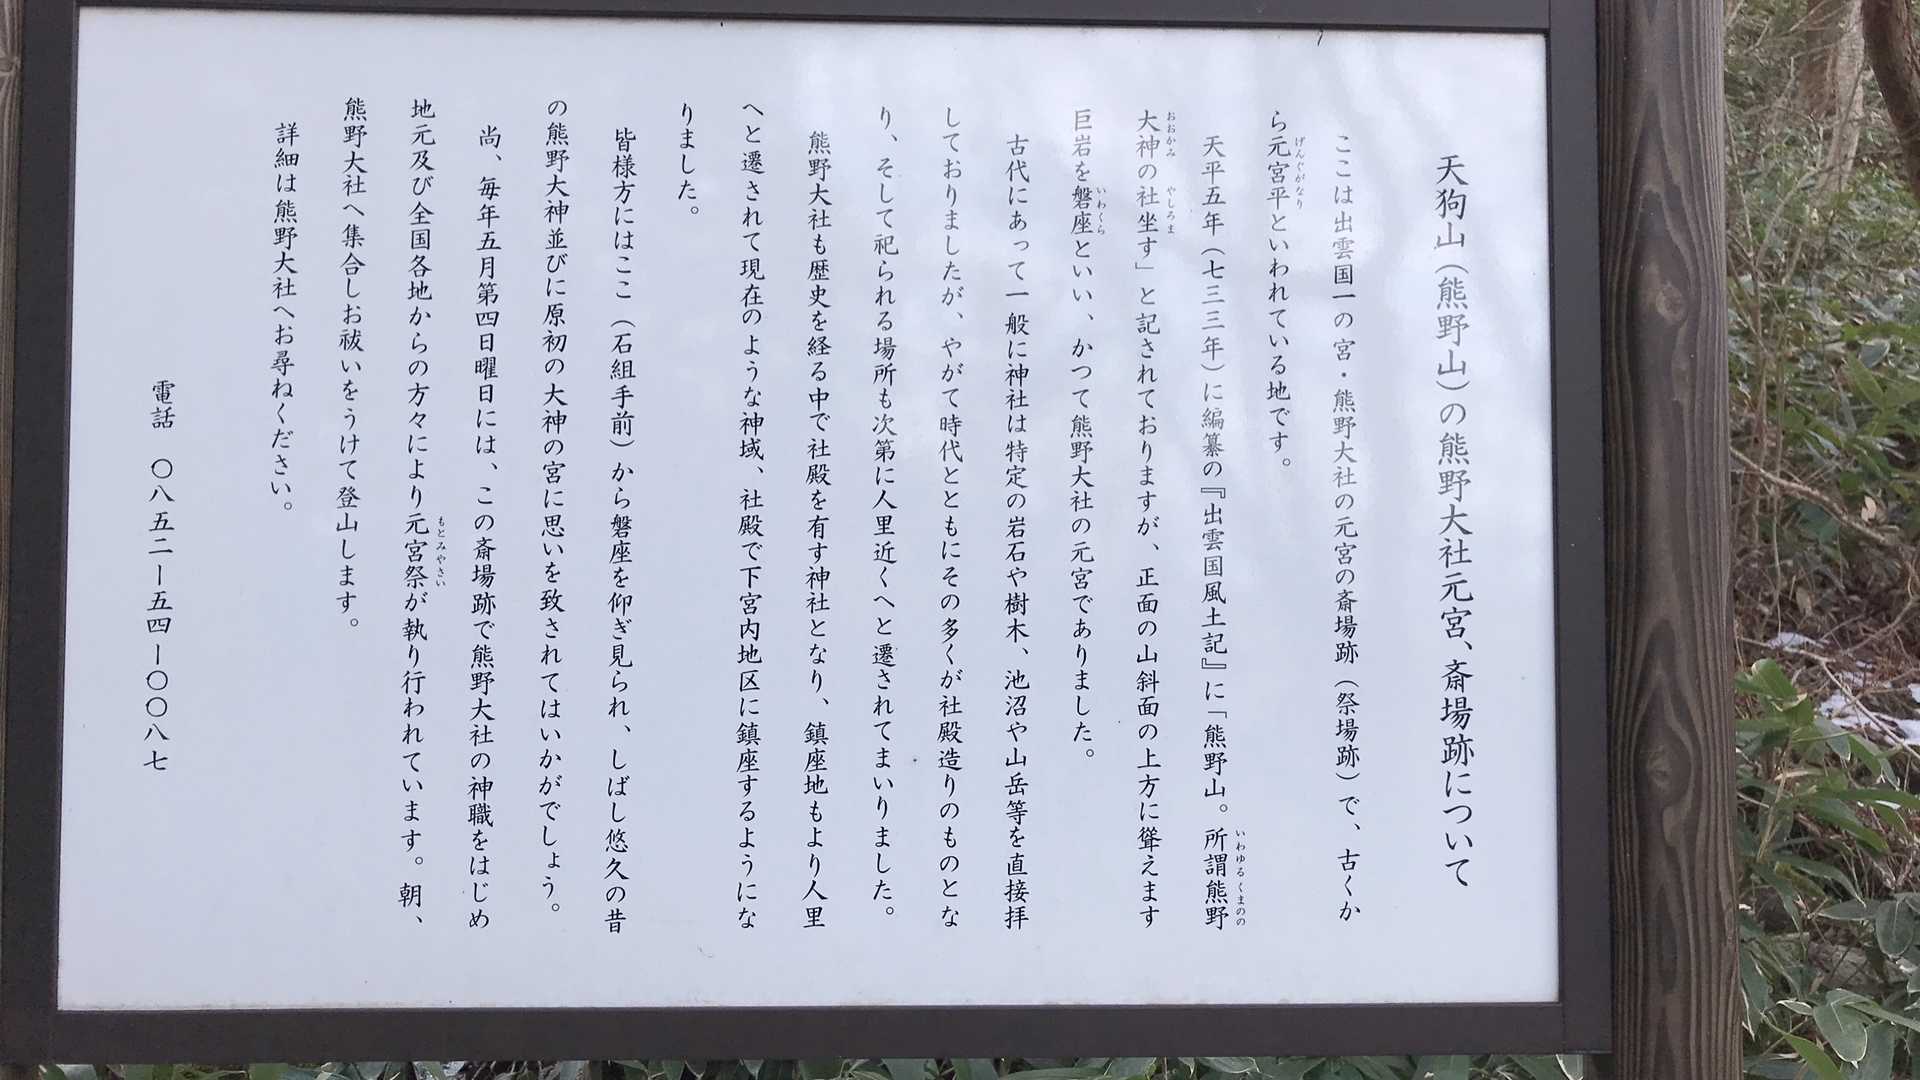 天狗山（熊野山）の熊野大社元宮、斎場跡について
ここは出雲国一の宮・熊野大社の元宮の斎場跡（祭場跡）で、古くか
ら元宮平といわれている地です。
げんぐがなり
天平五年（七三三年）に編纂の『出雲国風土記』に「熊野山。所謂熊野
いわゆるくまのの
大神の社坐す」と記されておりますが、正面の山斜面の上方に聳えます
おおかみ やしろま
巨岩を磐座といい、かつて熊野大社の元宮でありました。
いわくら
古代にあって一般に神社は特定の岩石や樹木、池沼や山岳等を直接拝
しておりましたが、やがて時代とともにその多くが社殿造りのものとな
り、そして祀られる場所も次第に人里近くへと遷されてまいりました。
熊野大社も歴史を経る中で社殿を有す神社となり、鎮座地もより人里
へと遷されて現在のような神域、社殿で下宮内地区に鎮座するようにな
りました。
皆様方にはここ（石組手前）から磐座を仰ぎ見られ、しばし悠久の昔
の熊野大神並びに原初の大神の宮に思いを致されてはいかがでしょう。
尚、毎年五月第四日曜日には、この斎場跡で熊野大社の神職をはじめ
地元及び全国各地からの方々により元宮祭が執り行われています。朝、
もとみやさい
熊野大社へ集合しお祓いをうけて登山します。
詳細は熊野大社へお尋ねください。
電話 〇八五二ー五四ー〇〇八七